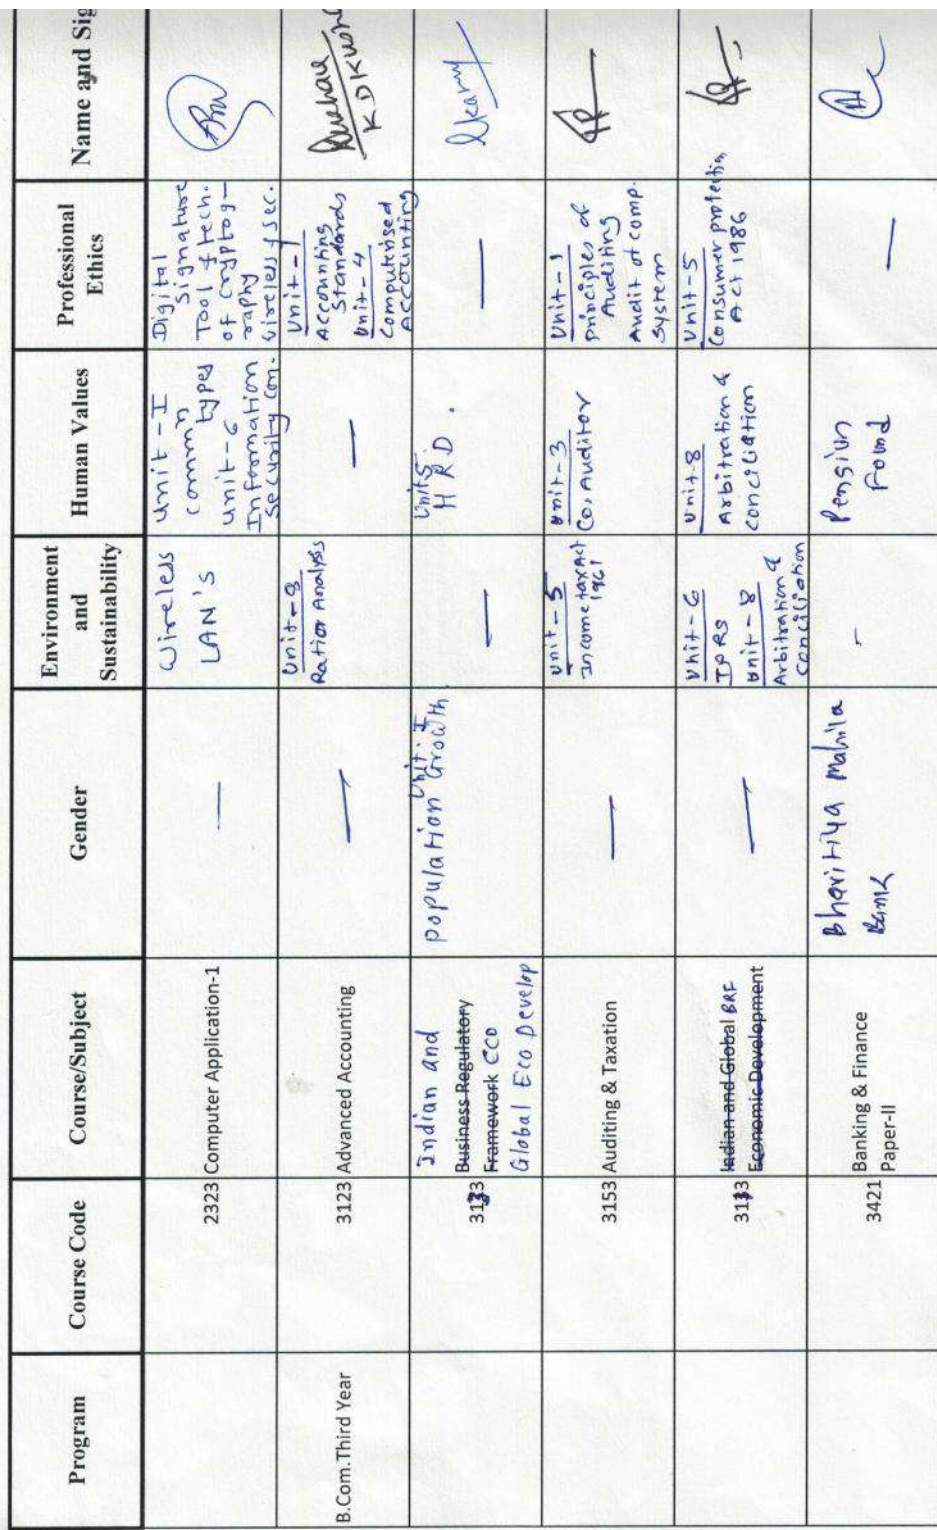 Program Course Code Course/Subject Gender Environment and Sustainability Human Values Professional Ethics Name and Sig
2323 Computer Application-1
—
Wireless
LAN'S
Unit-I
commn
types
unit-6
Information
Security con.
Digital
Signature
Tool & tech.
of cryptog-
raphy
wireless & sec.
B.Com.Third Year 3123 Advanced Accounting
—
Unit-3
Ratior Analysis
—
Unit-1
Accounting
Standards
Unit-4
Computerised
Accounting
KDKush
Indian and
Business Regulatory
Framework Eco
Global Eco Develop
Unit-I
population Growth.
—
Unit 5
H R D.
—
3153 Auditing & Taxation
—
Unit-5
Income tax Act
1961
Unit-3
Co, Auditor
Unit-1
principles of
Auditing
Audit of comp.
System
Indian and Global BRF
Economic Development
—
Unit-6
IPRS
Unit-8
Arbitration &
Conciliation
Unit-8
Arbitration &
conciliation
Unit-5
Consumer protection
Act 1986
3421 Banking & Finance
Paper-II
Bharitiya Mahila
Bank
-
Pension
Found
—